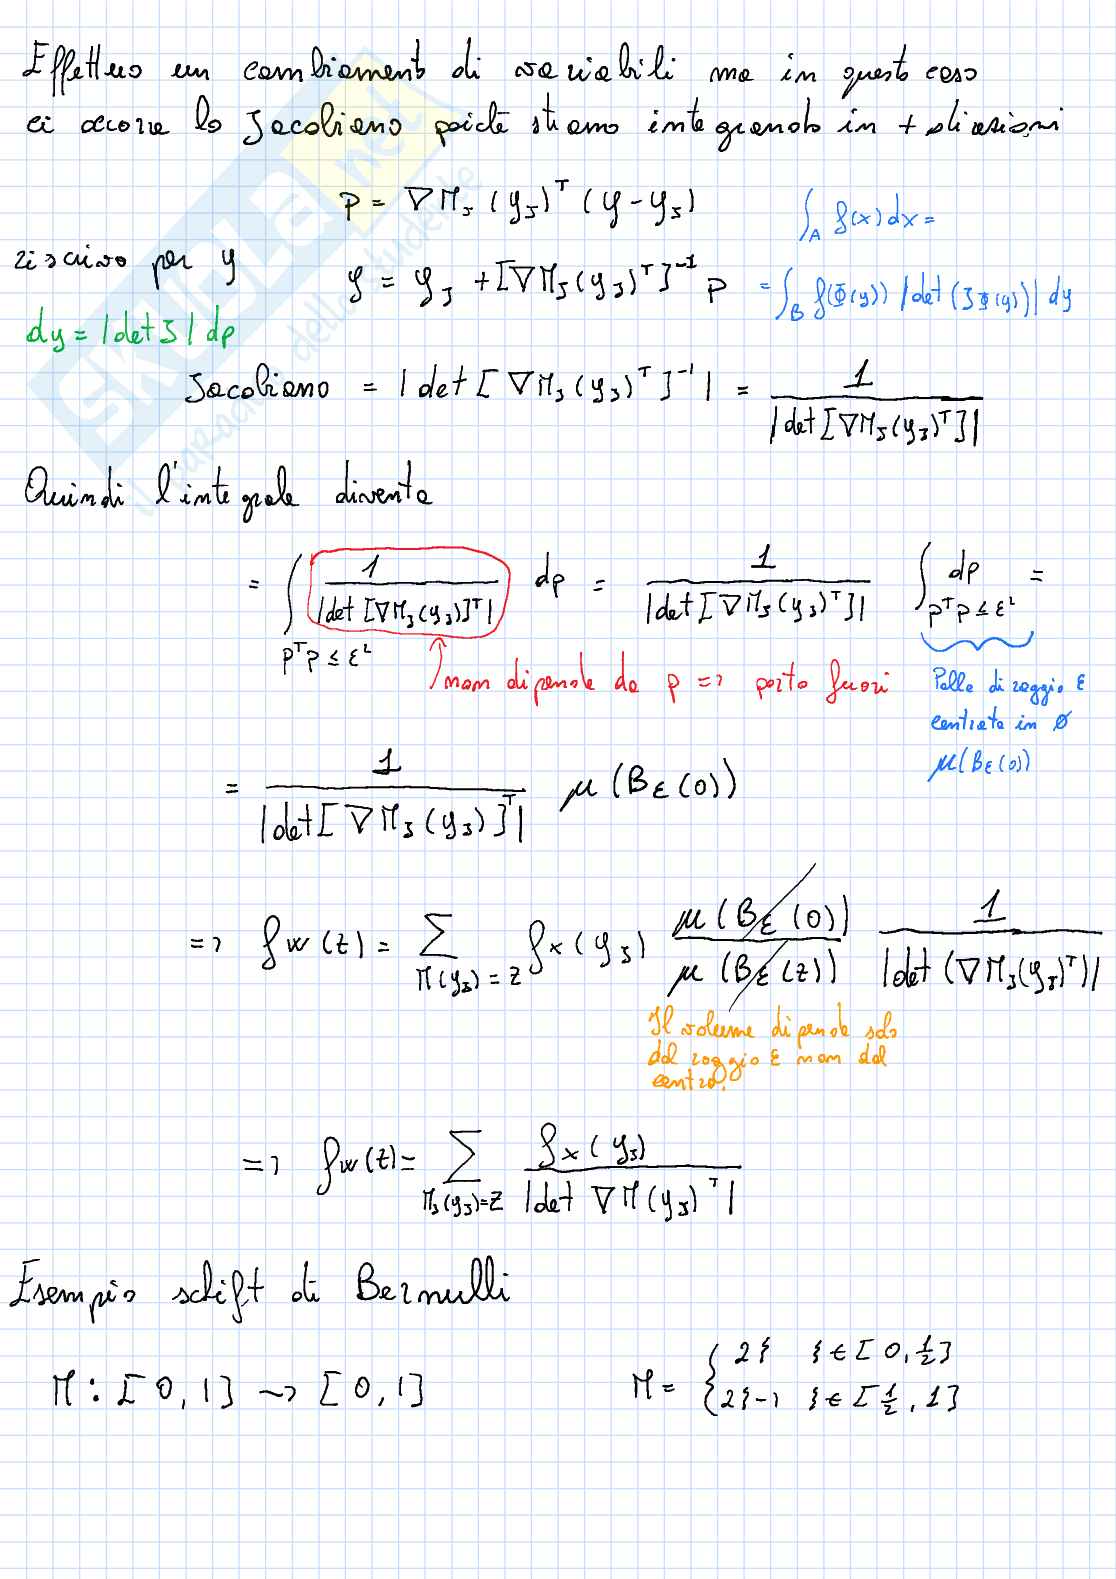 Effettuo un cambiamento di variabili ma in questo caso
ci occorre lo Jacobiano poiché stiamo integrando in + dimensioni
P = ∇M_J (y_J)^T (y - y_J)
∫_A f(x) dx =
riscrivo per y
y = y_J + [∇M_J (y_J)^T]^-1 P
= ∫_B f(Φ(y)) |det (JΦ(y))| dy
dy = |det J| dp
Jacobiano = |det [∇M_J (y_J)^T]^-1| = 1 / |det [∇M_J (y_J)^T]|
Quindi l'integrale diventa
= ∫_{P^T P ≤ ε^2} 1 / |det [∇M_J (y_J)]^T| dp = 1 / |det [∇M_J (y_J)^T]| ∫_{P^T P ≤ ε^2} dp =
non dipende da p => porto fuori
Palla di raggio ε
centrata in 0
μ(Bε(0))
= 1 / |det [∇M_J (y_J)]^T| μ(Bε(0))
=> f_W(z) = Σ_{M(y_J) = z} f_x(y_J) μ(Bε(0)) / μ(Bε(z)) 1 / |det (∇M_J (y_J)^T)|
Il volume dipende solo
dal raggio ε e non dal
centro.
=> f_W(z) = Σ_{M_J(y_J) = z} f_x(y_J) / |det ∇M(y_J)^T|
Esempio schift di Bernulli
M : [0,1] → [0,1]
M = { 2ξ ξ ∈ [0, 1/2]
2ξ-1 ξ ∈ [1/2, 1]
SKUOLA.net